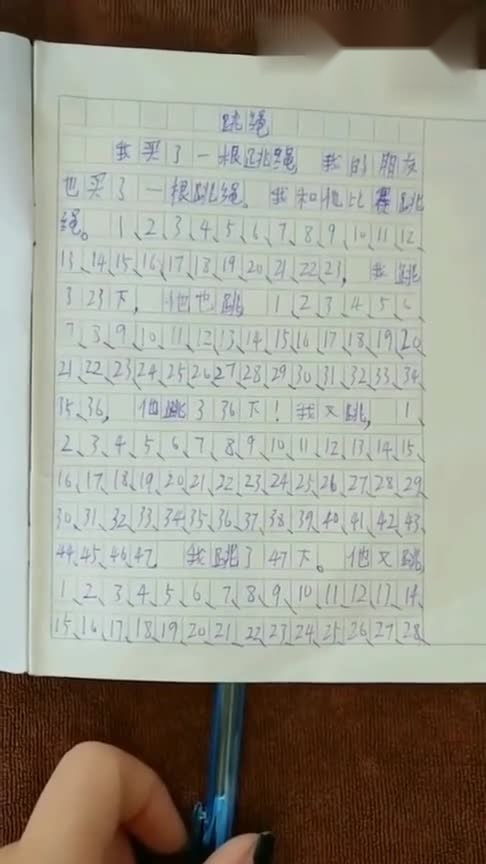 跳绳
我买了一根跳绳 我的朋友
也买了一根跳绳。我和他比赛跳
绳。1、2、3、4、5、6、7、8、9、10、11、12、
13、14、15、16、17、18、19、20、21、22、23，我跳
了23下，他也跳 1、2、3、4、5、6
7、8、9、10、11、12、13、14、15、16、17、18、19、20
21、22、23、24、25、26、27、28、29、30、31、32、33、34
35、36，他跳了36下！我又跳，1、
2、3、4、5、6、7、8、9、10、11、12、13、14、15、
16、17、18、19、20、21、22、23、24、25、26、27、28、29
30、31、32、33、34、35、36、37、38、39、40、41、42、43、
44、45、46、47 我跳了47下。他又跳
1、2、3、4、5、6、7、8、9、10、11、12、13、14、
15、16、17、18、19、20、21、22、23、24、25、26、27、28、